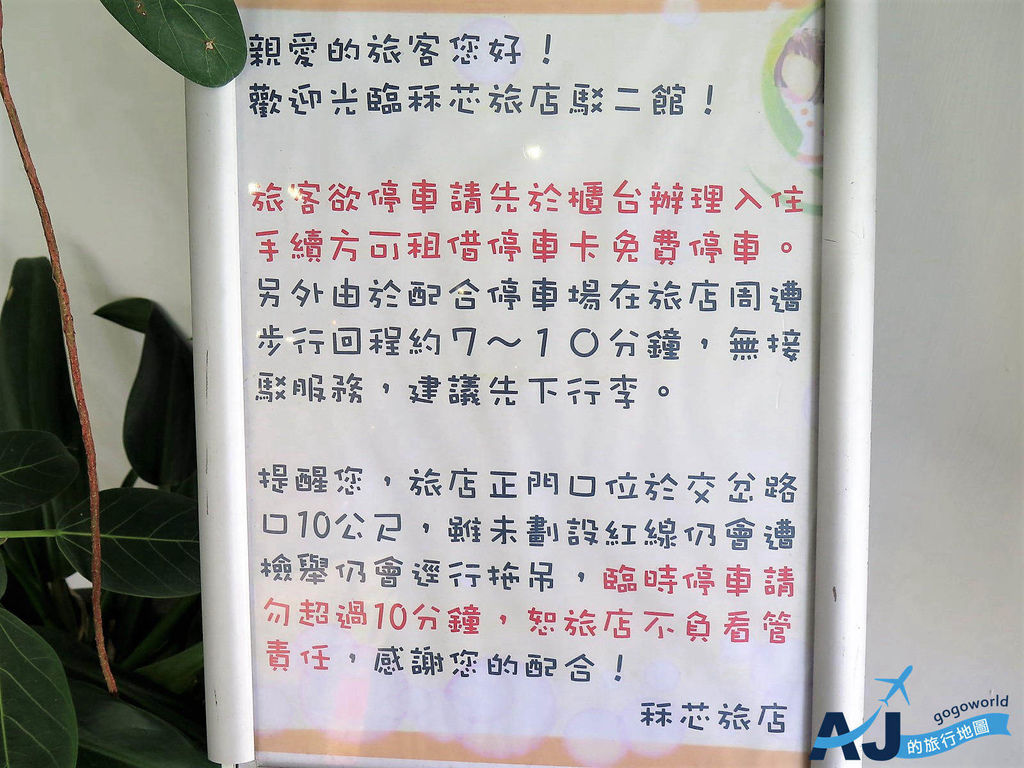 親愛的旅客您好！
歡迎光臨秝芯旅店駁二館！
旅客欲停車請先於櫃台辦理入住
手續方可租借停車卡免費停車。
另外由於配合停車場在旅店周遭
步行回程約7～10分鐘，無接
駁服務，建議先下行李。
提醒您，旅店正門口位於交岔路
口10公尺，雖未劃設紅線仍會遭
檢舉仍會逕行拖吊，臨時停車請
勿超過10分鐘，恕旅店不負看管
責任，感謝您的配合！
秝芯旅店
gogoworld
AJ的旅行地圖